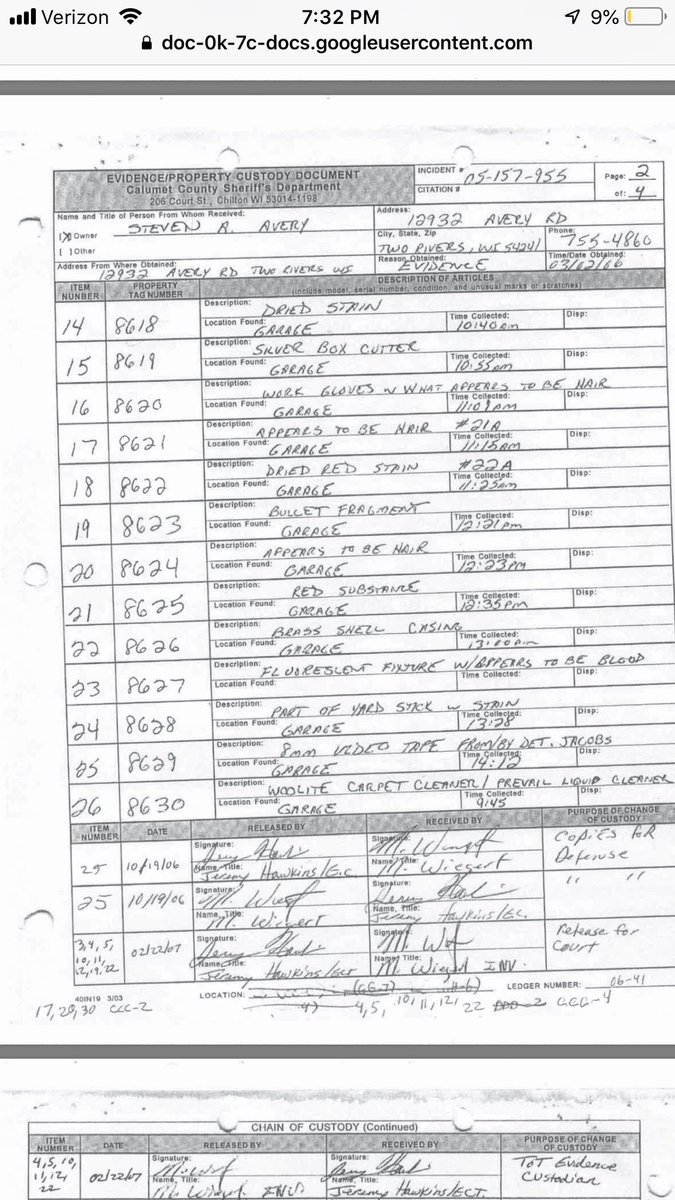 Verizon 7:32 PM 9%
doc-0k-7c-docs.googleusercontent.com
EVIDENCE/PROPERTY CUSTODY DOCUMENT
Calumet County Sheriff's Department
206 Court St., Chilton WI 53014-1198
INCIDENT # 05-157-955
CITATION #
Page: 2
of: 4
Name and Title of Person From Whom Received:
[X] Owner STEVEN A. AVERY
[ ] Other
Address:
12932 AVERY RD
City, State, Zip
TWO RIVERS, WI 54241
Phone:
755-4860
Address From Where Obtained:
12932 AVERY RD TWO RIVERS WI
Reason Obtained:
EVIDENCE
Time/Date Obtained:
ITEM NUNBER PROPERTY TAG NUMBER DESCRIPTION OF ARTICLES
(Include model, serial number, condition, and unusual marks or scratches)
14 8618 Description: DRIED STAIN
Location Found: GARAGE Time Collected: 10:40am Disp:
15 8619 Description: SILVER BOX CUTTER
Location Found: GARAGE Time Collected: 10:55am Disp:
16 8620 Description: WORK GLOVES W WHAT APPEARS TO BE HAIR
Location Found: GARAGE Time Collected: Disp:
17 8621 Description: APPEARS TO BE HAIR #21A
Location Found: GARAGE Time Collected: 11:15AM Disp:
18 8622 Description: DRIED RED STAIN #22A
Location Found: GARAGE Time Collected: 11:25am Disp:
19 8623 Description: BULLET FRAGMENT
Location Found: GARAGE Time Collected: 12:21pm Disp:
20 8624 Description: APPEARS TO BE HAIR
Location Found: GARAGE Time Collected: 12:23PM Disp:
21 8625 Description: RED SUBSTANCE
Location Found: GARAGE Time Collected: 12:35pm Disp:
22 8626 Description: BRASS SHELL CASING
Location Found: GARAGE Time Collected: Disp:
23 8627 Description: FLUORESCENT FIXTURE W/APPEARS TO BE BLOOD
Location Found: Time Collected: Disp:
24 8628 Description: PART OF YARD STICK W STAIN
Location Found: GARAGE Time Collected: 13:28 Disp:
25 8629 Description: 8mm VIDEO TAPE FROM/BY DET. JACOBS
Location Found: GARAGE Time Collected: 14:12 Disp:
26 8630 Description: WOOLITE CARPET CLEANER / PREVAIL LIQUID CLEANER
Location Found: GARAGE Time Collected: 9:45 Disp:
ITEM NUMBER DATE RELEASED BY RECEIVED BY PURPOSE OF CHANGE OF CUSTODY
25 10/19/06 Signature: Signature: Copies for Defense
Name, Title: Jeremy Hawkins/E.C. Name, Title: M. Wiegert
25 10/19/06 Signature: Signature: " "
Name, Title: M. Wiegert Name, Title: Jeremy Hawkins/E.C.
3,4,5, 10,11, 12,19,22 02/22/07 Signature: Signature: Release for Court
Name, Title: Jeremy Hawkins/ECT Name, Title: M. Wiegert INV.
40IN19 3/03 LOCATION: LEDGER NUMBER: 06-41
17,20,30 CCC-2 4,5, 10,11,12, 22 GGG-4
CHAIN OF CUSTODY (Continued)
ITEM NUMBER DATE RELEASED BY RECEIVED BY PURPOSE OF CHANGE OF CUSTODY
4,5,10, 11,12, 22 02/22/07 Signature: Signature: TOT Evidence Custodian
Name, Title: M. Wiegert INV Name, Title: Jeremy Hawkins/ECT